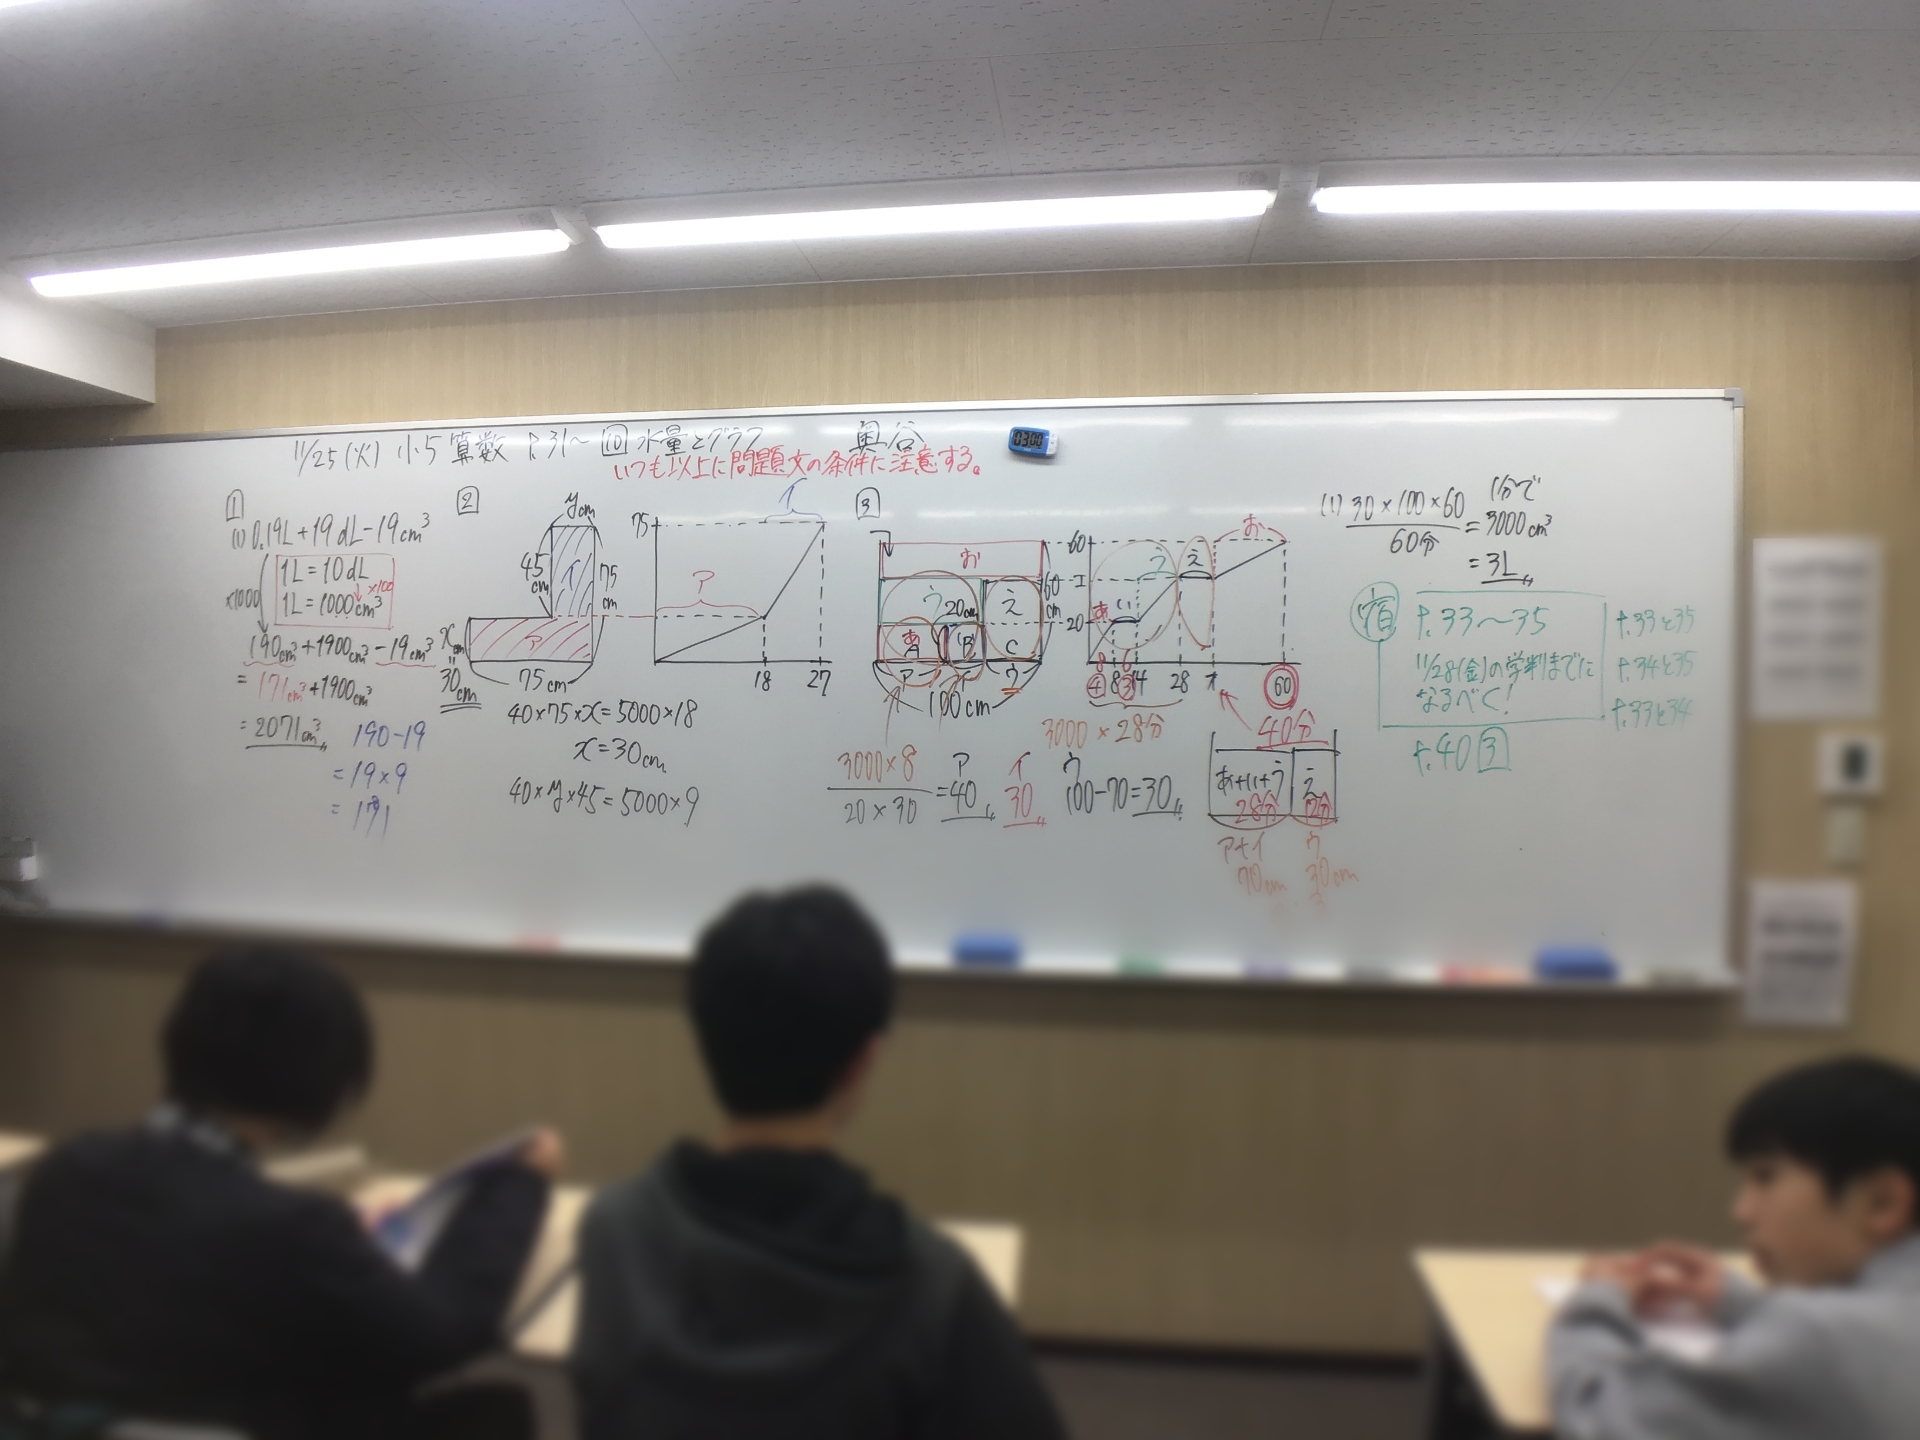 11/25(火) 小5 算数 P.31〜 10 水量とグラフ 奥谷
いつも以上に問題文の条件に注意する。
03:00
1
(1) 0.19L+19dL-19cm³
1L=10dL
×100
1L=1000cm³
×1000
190cm³+1900cm³-19cm³
= 171cm³+1900cm³
= 2071cm³
190-19
= 19×9
= 171
2
ycm
45cm
イ
75cm
xcm
ア
30cm
75cm
75
イ
ア
18 27
40×75×x=5000×18
x=30cm
40×y×45=5000×9
3
お
う 20cm
え
60cm
あ
A B C
ア イ ウ
100cm
60
エ
20
お
う え
あ い
8 6
④ 8 ③ 14 28 オ 60
3000×28分
40分
3000×8
20×30
=40
ア
イ
30
ウ
100-70=30
あ+い+う え
28分 12分
ア+イ ウ
70cm 30cm
3
(1) 30×100×60
60分
1分で
= 3000cm³
= 3L
宿 P.33〜35
11/28(金)の学判までに
なるべく!
P.40 3
P.33と35
P.34と35
P.33と34